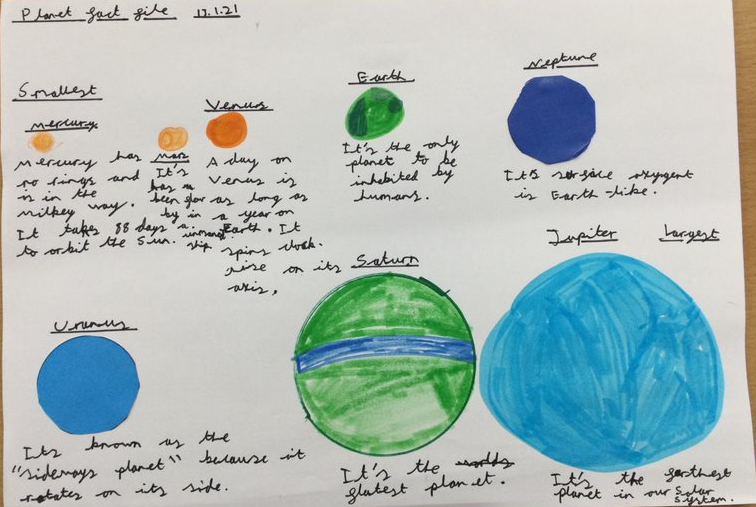 Planet fact file 13.1.21
Smallest
Mercury
Mercury has
no rings and
is in the
milkey way.
It takes 88 days
to orbit the Sun.
Mars
It's
has
been
by in a
unmaned
ship
Venus
A day on
Venus is
as long as
a year on
Earth. It
spins clock-
wise on its
axis,
Earth
It's the only
planet to be
inhebited by
humans.
Neptune
It's oxygent
is Earth-like.
Uranus
Its known as the
"sideways planet" because it
rotates on its side.
Saturn
It's the
flatest planet.
Jupiter Largest
It's the
planet in our Solar
System.